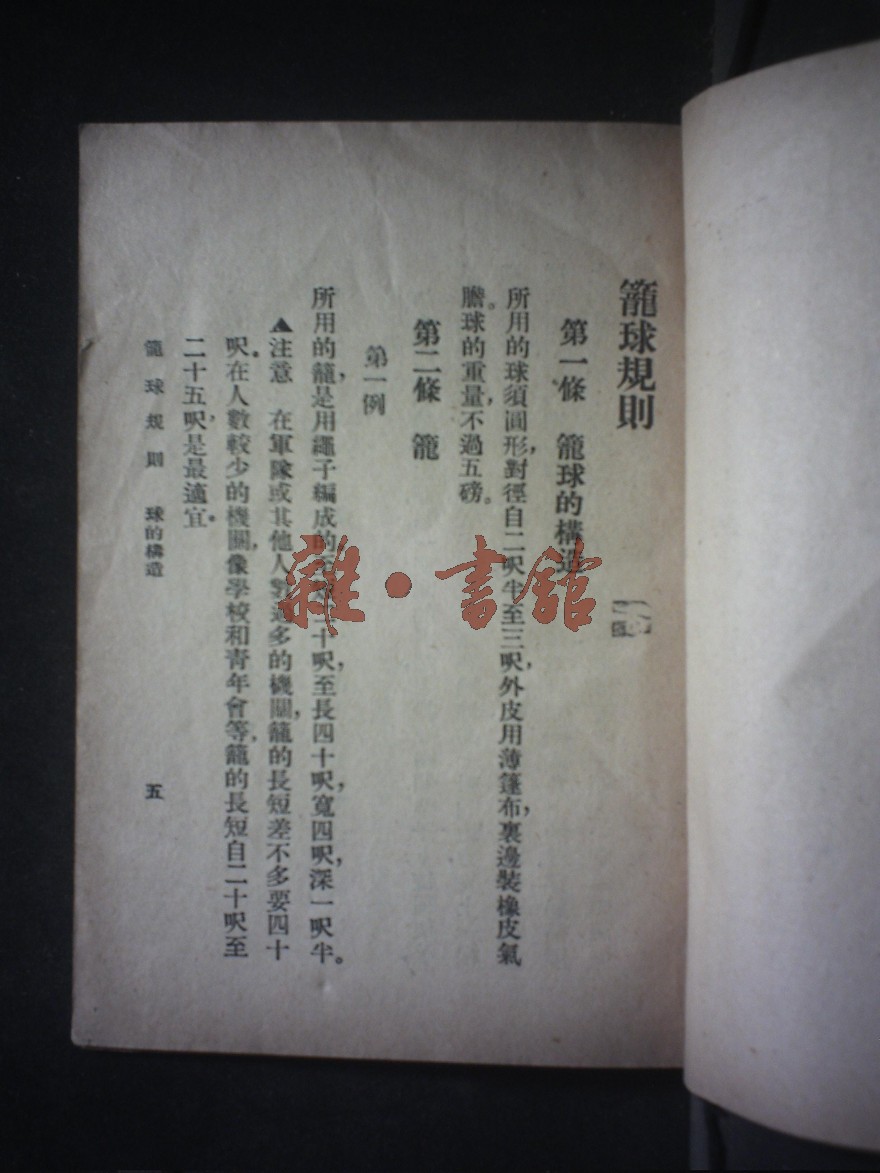 籠球規則
第一條　籠球的構造
所用的球須圓形，對徑自二呎半至三呎，外皮用薄篷布，裏邊裝橡皮氣
膽。球的重量，不過五磅。
第二條　籠
第一例
所用的籠，是用繩子編成的，至 十呎，至長四十呎，寬四呎，深一呎半。
▲注意　在軍隊或其他人數過多的機關，籠的長短差不多要四十
呎。在人數較少的機關，像學校和青年會等，籠的長短自二十呎至
二十五呎，是最適宜。
籠球規則　球的構造
五
雜·書館